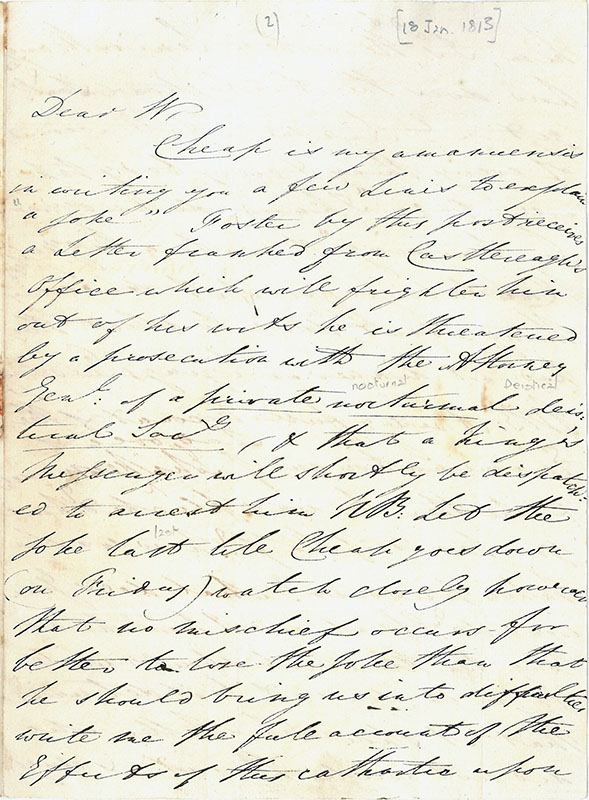 (2)
[18 Jan. 1813]
Dear W,
Cheap is my amanuensis
in writing you a few Lines to explain
"a Joke" Foster by this post receives
a Letter franked from Castlereagh's
Office which will frighten him
out of his wits he is threatened
by a prosecution with the Attorney
nocturnal Deistical
Genl. of a private nocturnal deis,
tical Socy, & that a King's
Messenger will shortly be dispatch-
ed to arrest him NB: Let the
last
Joke last till Cheap goes down
(on Friday) watch closely however
that no mischief occurs for
better to lose the Joke than that
he should bring us into difficulties
write me the full account of the
Effects of this cathartic upon